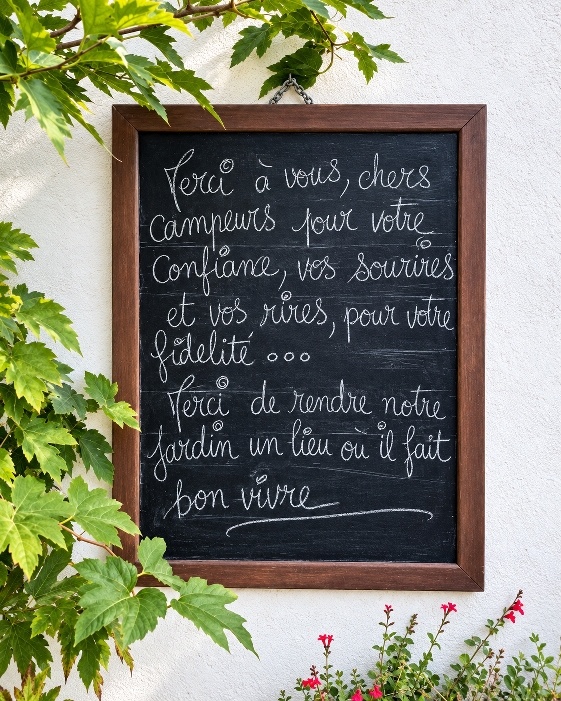 Merci à vous, chers
campeurs pour votre
confiance, vos sourires
et vos rires, pour votre
fidelité ...
Merci de rendre notre
jardin un lieu où il fait
bon vivre